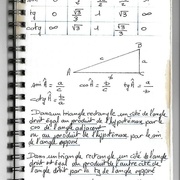 tg 0 √3/3 1 √3 ∞
cotg ∞ √3 1 √3/3 0
B
c
a
A
b
sin Â = a/c cos Â = b/c tg Â = a/b
cotg Â = b/a
Dans un triangle rectangle un côté de l'angle
droit égal au produit de l'hypoténuse par le
cos de l'angle adjacent
ou au produit de l'hypoténuse par le sin
de l'angle opposé
Dans un triangle rectangle un côté de l'angle
droit est égal au produit de l'autre côté de
l'angle droit par la tg de l'angle opposé